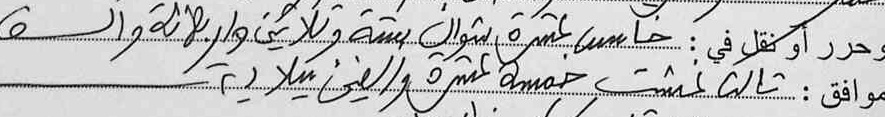 وحرر أو نقل في : خامس عشرة شوال ستة وثلاثين واربعمائة والف
موافق : تالت غشت خمسة عشرة والفين ميلادية